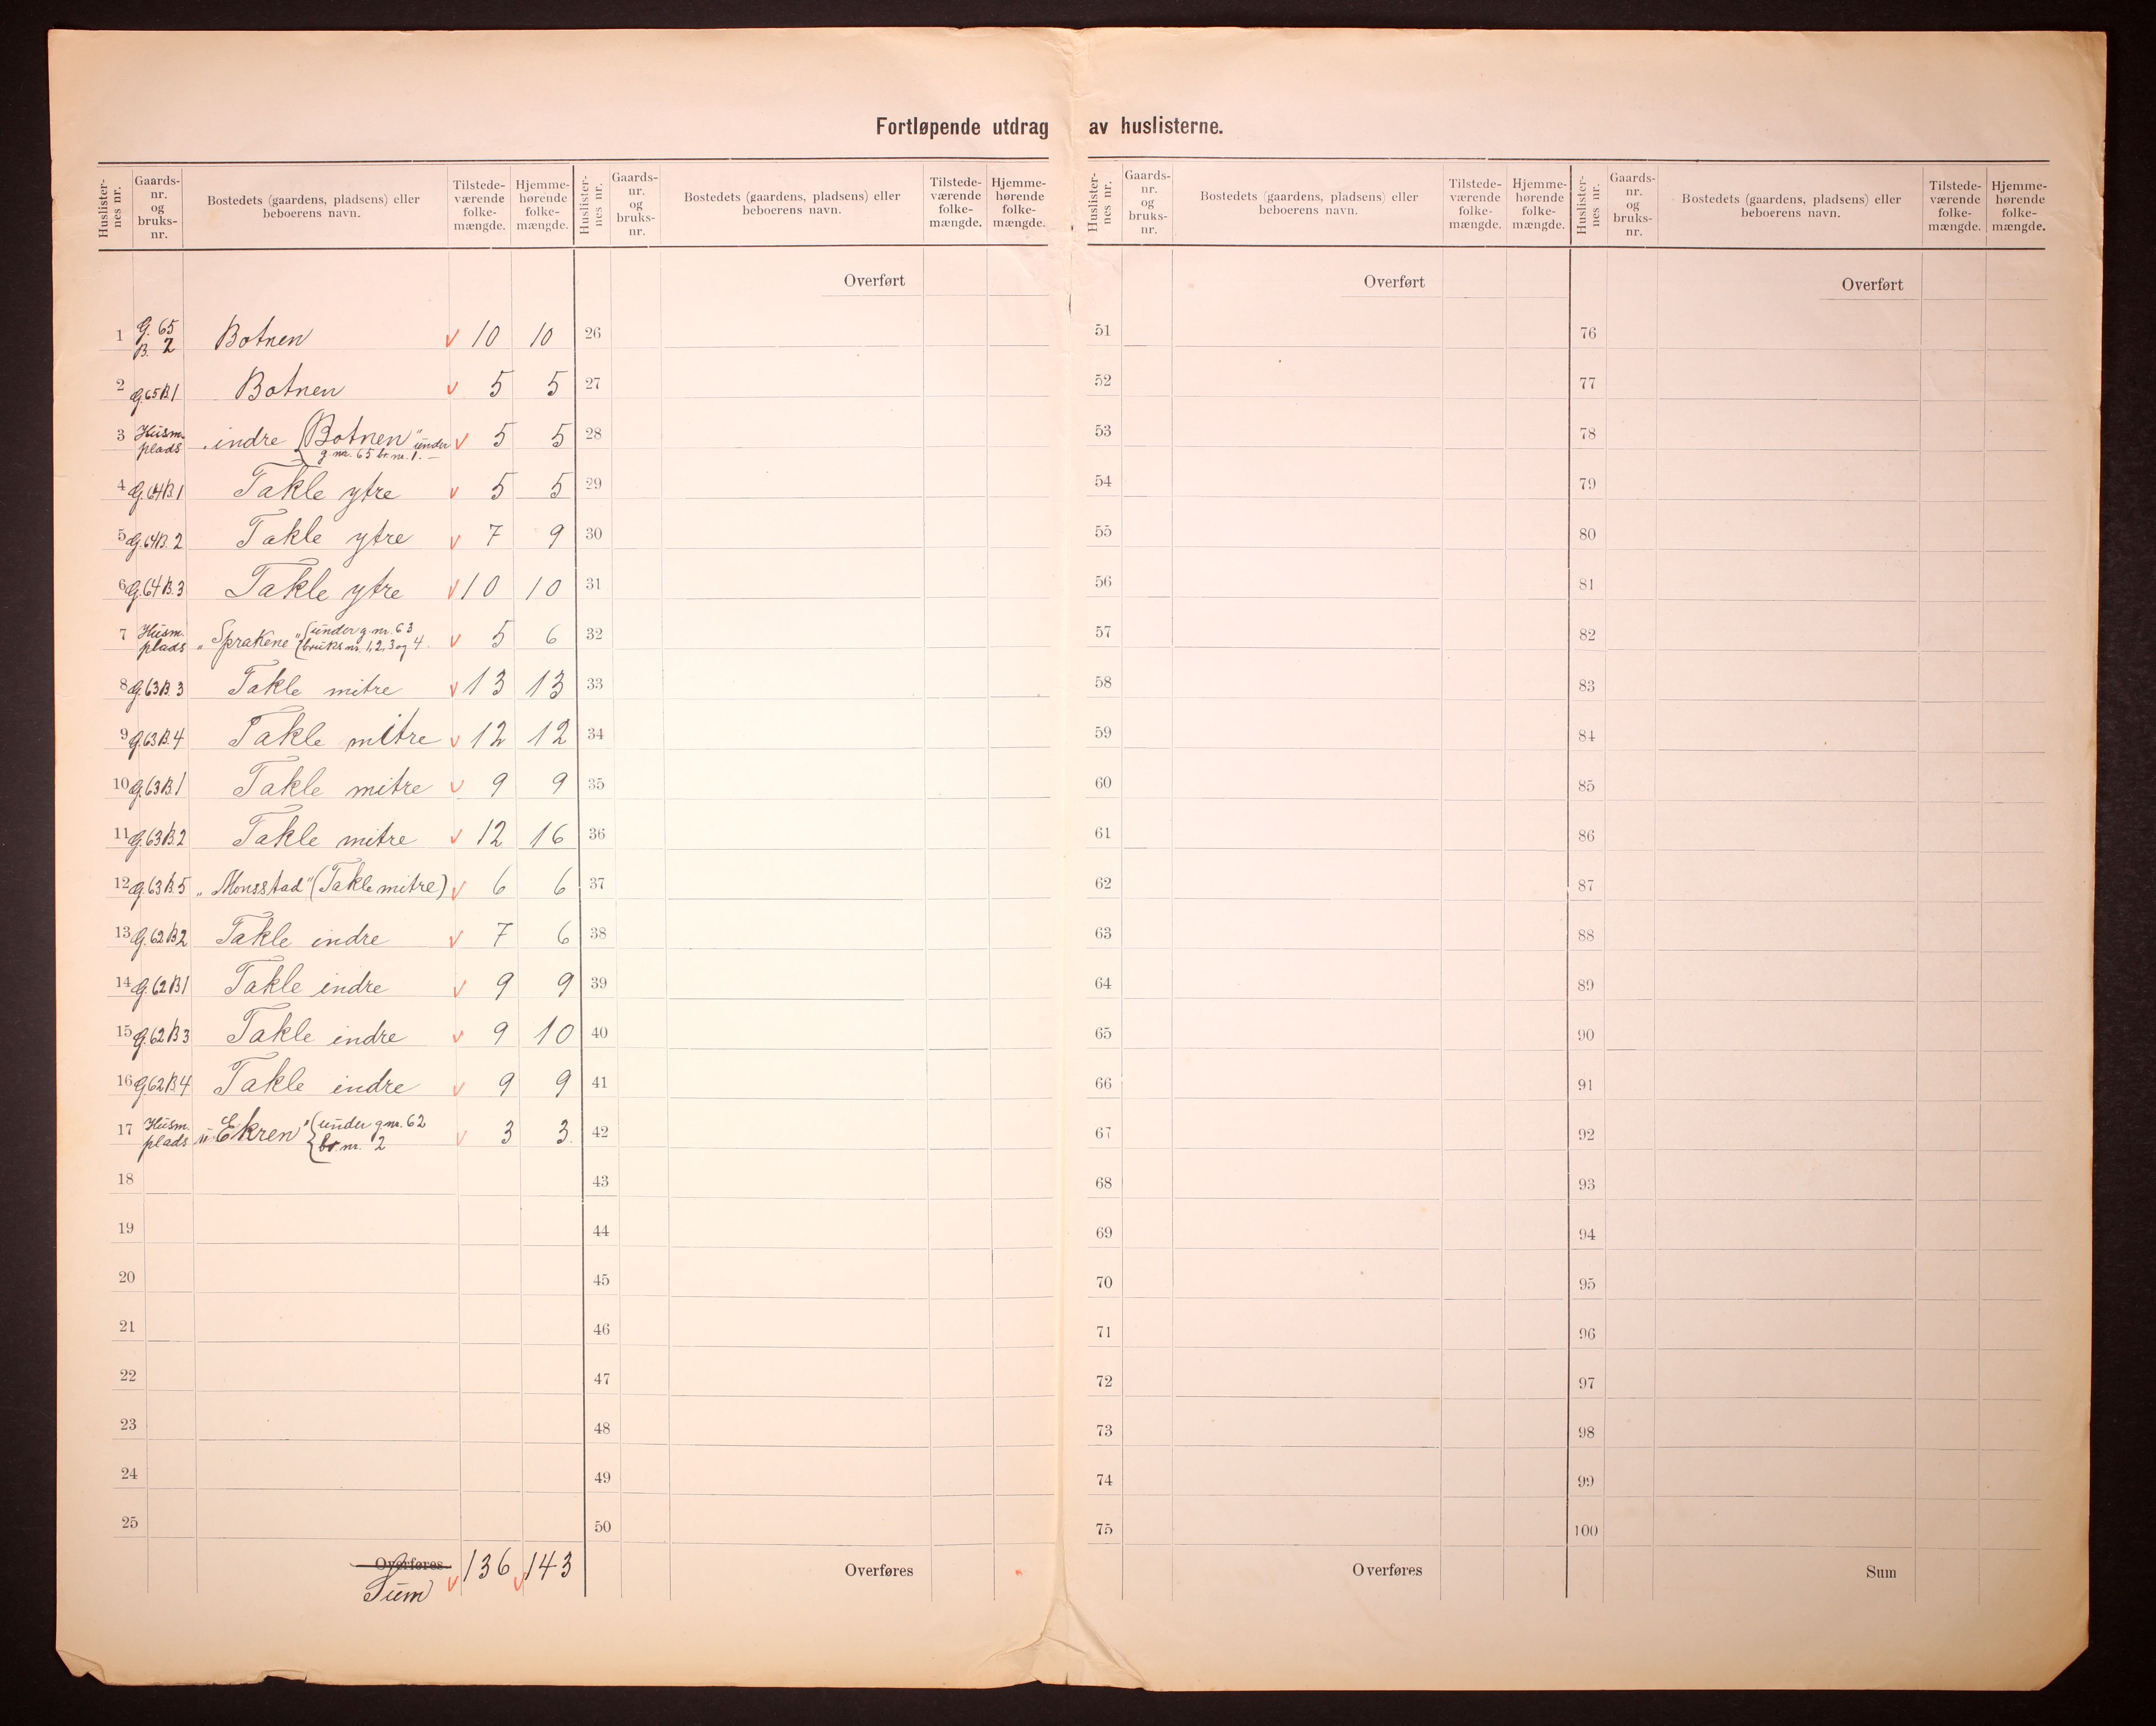 Fortløpende utdrag av huslisterne.
Huslisternes nr. Gaards-nr. og bruks-nr. Bostedets (gaardens, pladsens) eller beboerens navn. Tilstede-værende folke-mængde. Hjemme-hørende folke-mængde.
Huslisternes nr. Gaards-nr. og bruks-nr. Bostedets (gaardens, pladsens) eller beboerens navn. Tilstede-værende folke-mængde. Hjemme-hørende folke-mængde.
Huslisternes nr. Gaards-nr. og bruks-nr. Bostedets (gaardens, pladsens) eller beboerens navn. Tilstede-værende folke-mængde. Hjemme-hørende folke-mængde.
Huslisternes nr. Gaards-nr. og bruks-nr. Bostedets (gaardens, pladsens) eller beboerens navn. Tilstede-værende folke-mængde. Hjemme-hørende folke-mængde.
Overført Overført Overført
1 G. 65 B. 2 Botnen v 10 10
2 G. 65 B. 1 Botnen v 5 5
3 Husm. plads „indre Botnen" under g. nr. 65 br. nr. 1. v 5 5
4 G. 64 B. 1 Takle ytre v 5 5
5 G. 64 B. 2 Takle ytre v 7 9
6 G. 64 B. 3 Takle ytre v 10 10
7 Husm. plads „Sprakene" under g. nr. 63 bruks nr. 1, 2, 3 og 4. v 5 6
8 G. 63 B. 3 Takle mitre v 13 13
9 G. 63 B. 4 Takle mitre v 12 12
10 G. 63 B. 1 Takle mitre v 9 9
11 G. 63 B. 2 Takle mitre v 12 16
12 G. 63 B. 5 „Monsstad" (Takle mitre) v 6 6
13 G. 62 B. 2 Takle indre v 7 6
14 G. 62 B. 1 Takle indre v 9 9
15 G. 62 B. 3 Takle indre v 9 10
16 G. 62 B. 4 Takle indre v 9 9
17 Husm. plads „Ekren" under g. nr. 62 br. nr. 2 v 3 3.
18
19
20
21
22
23
24
25
Overføres Sum v 136 v 143
26
27
28
29
30
31
32
33
34
35
36
37
38
39
40
41
42
43
44
45
46
47
48
49
50
Overføres
51
52
53
54
55
56
57
58
59
60
61
62
63
64
65
66
67
68
69
70
71
72
73
74
75
Overføres
76
77
78
79
80
81
82
83
84
85
86
87
88
89
90
91
92
93
94
95
96
97
98
99
100
Sum